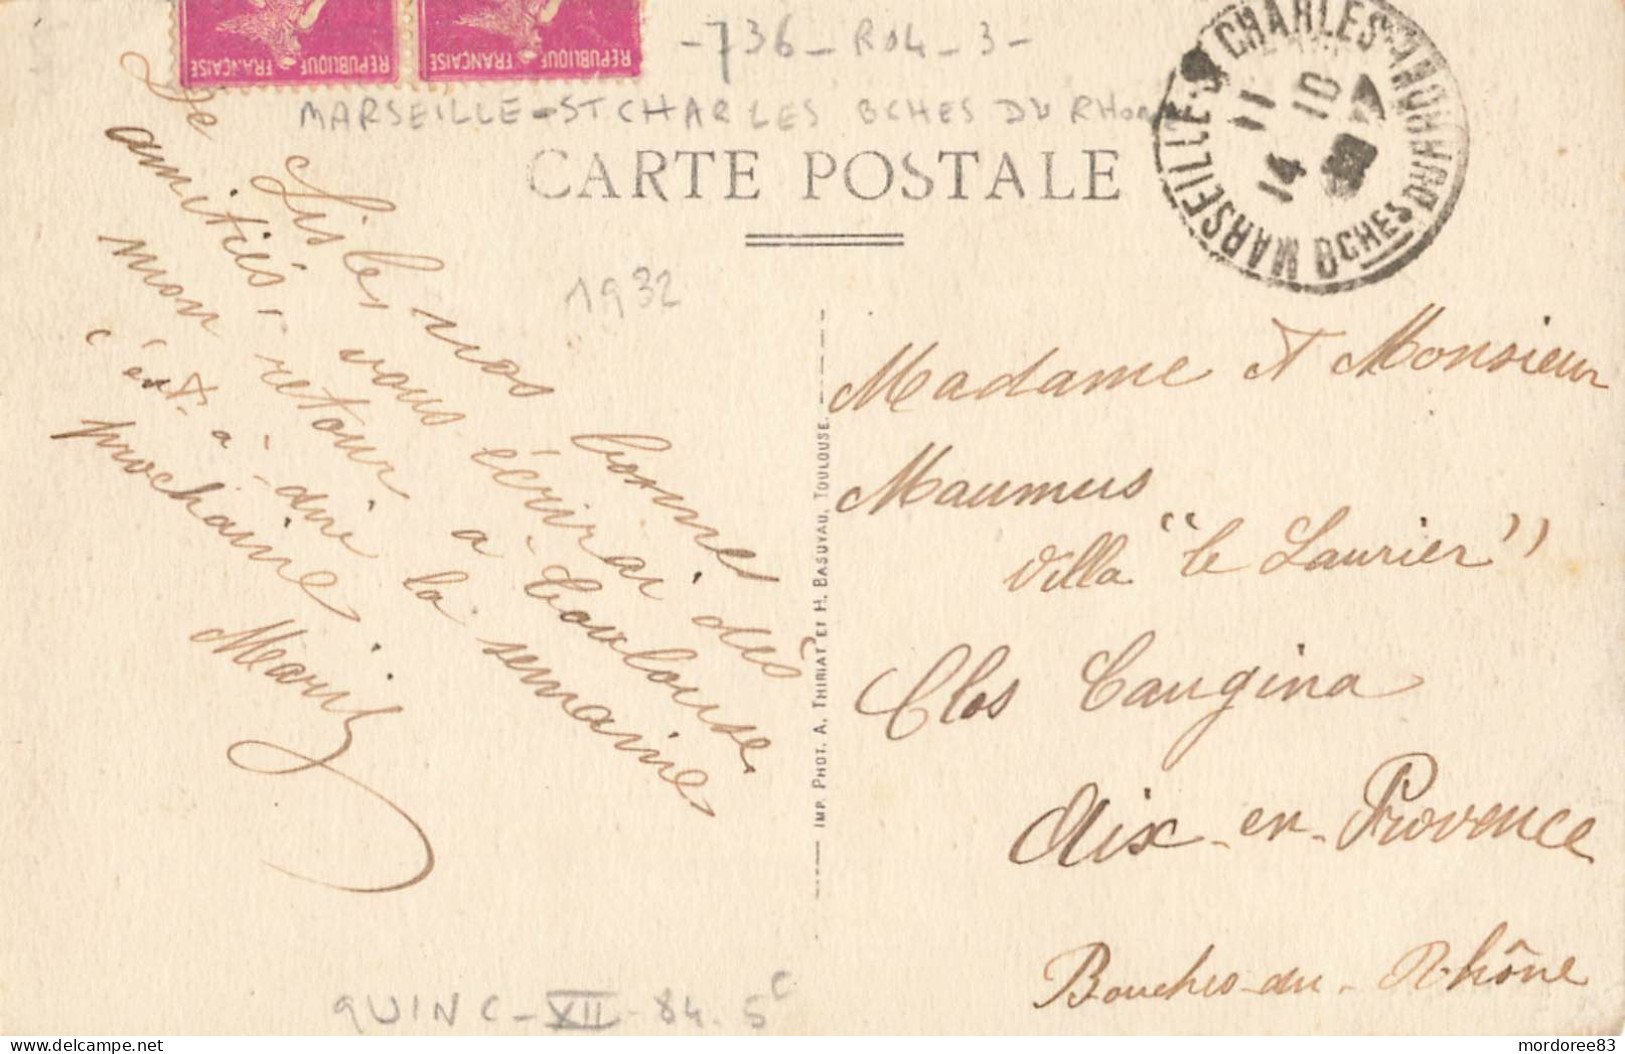 REPUBLIQUE FRANÇAISE
REPUBLIQUE FRANÇAISE
-736-R04-3-
MARSEILLE-ST CHARLES BCHES DU RHONE
CARTE POSTALE
MARSEILLE-ST CHARLES
BCHES DU RHONE
11 10
14
1932
nos bonnes
amitiés, vous écrirai dès
mon retour à Toulouse.
c'est-à-dire la semaine
prochaine
IMP. PHOT. A. THIRIAT ET H. BASUYAU, TOULOUSE.
Madame et Monsieur
Maumus
Villa "le Laurier"
Clos Caugina
Aix-en-Provence
Bouches-du-Rhône
QUINC-XII-84. 5C
www.delcampe.net
mordoree83